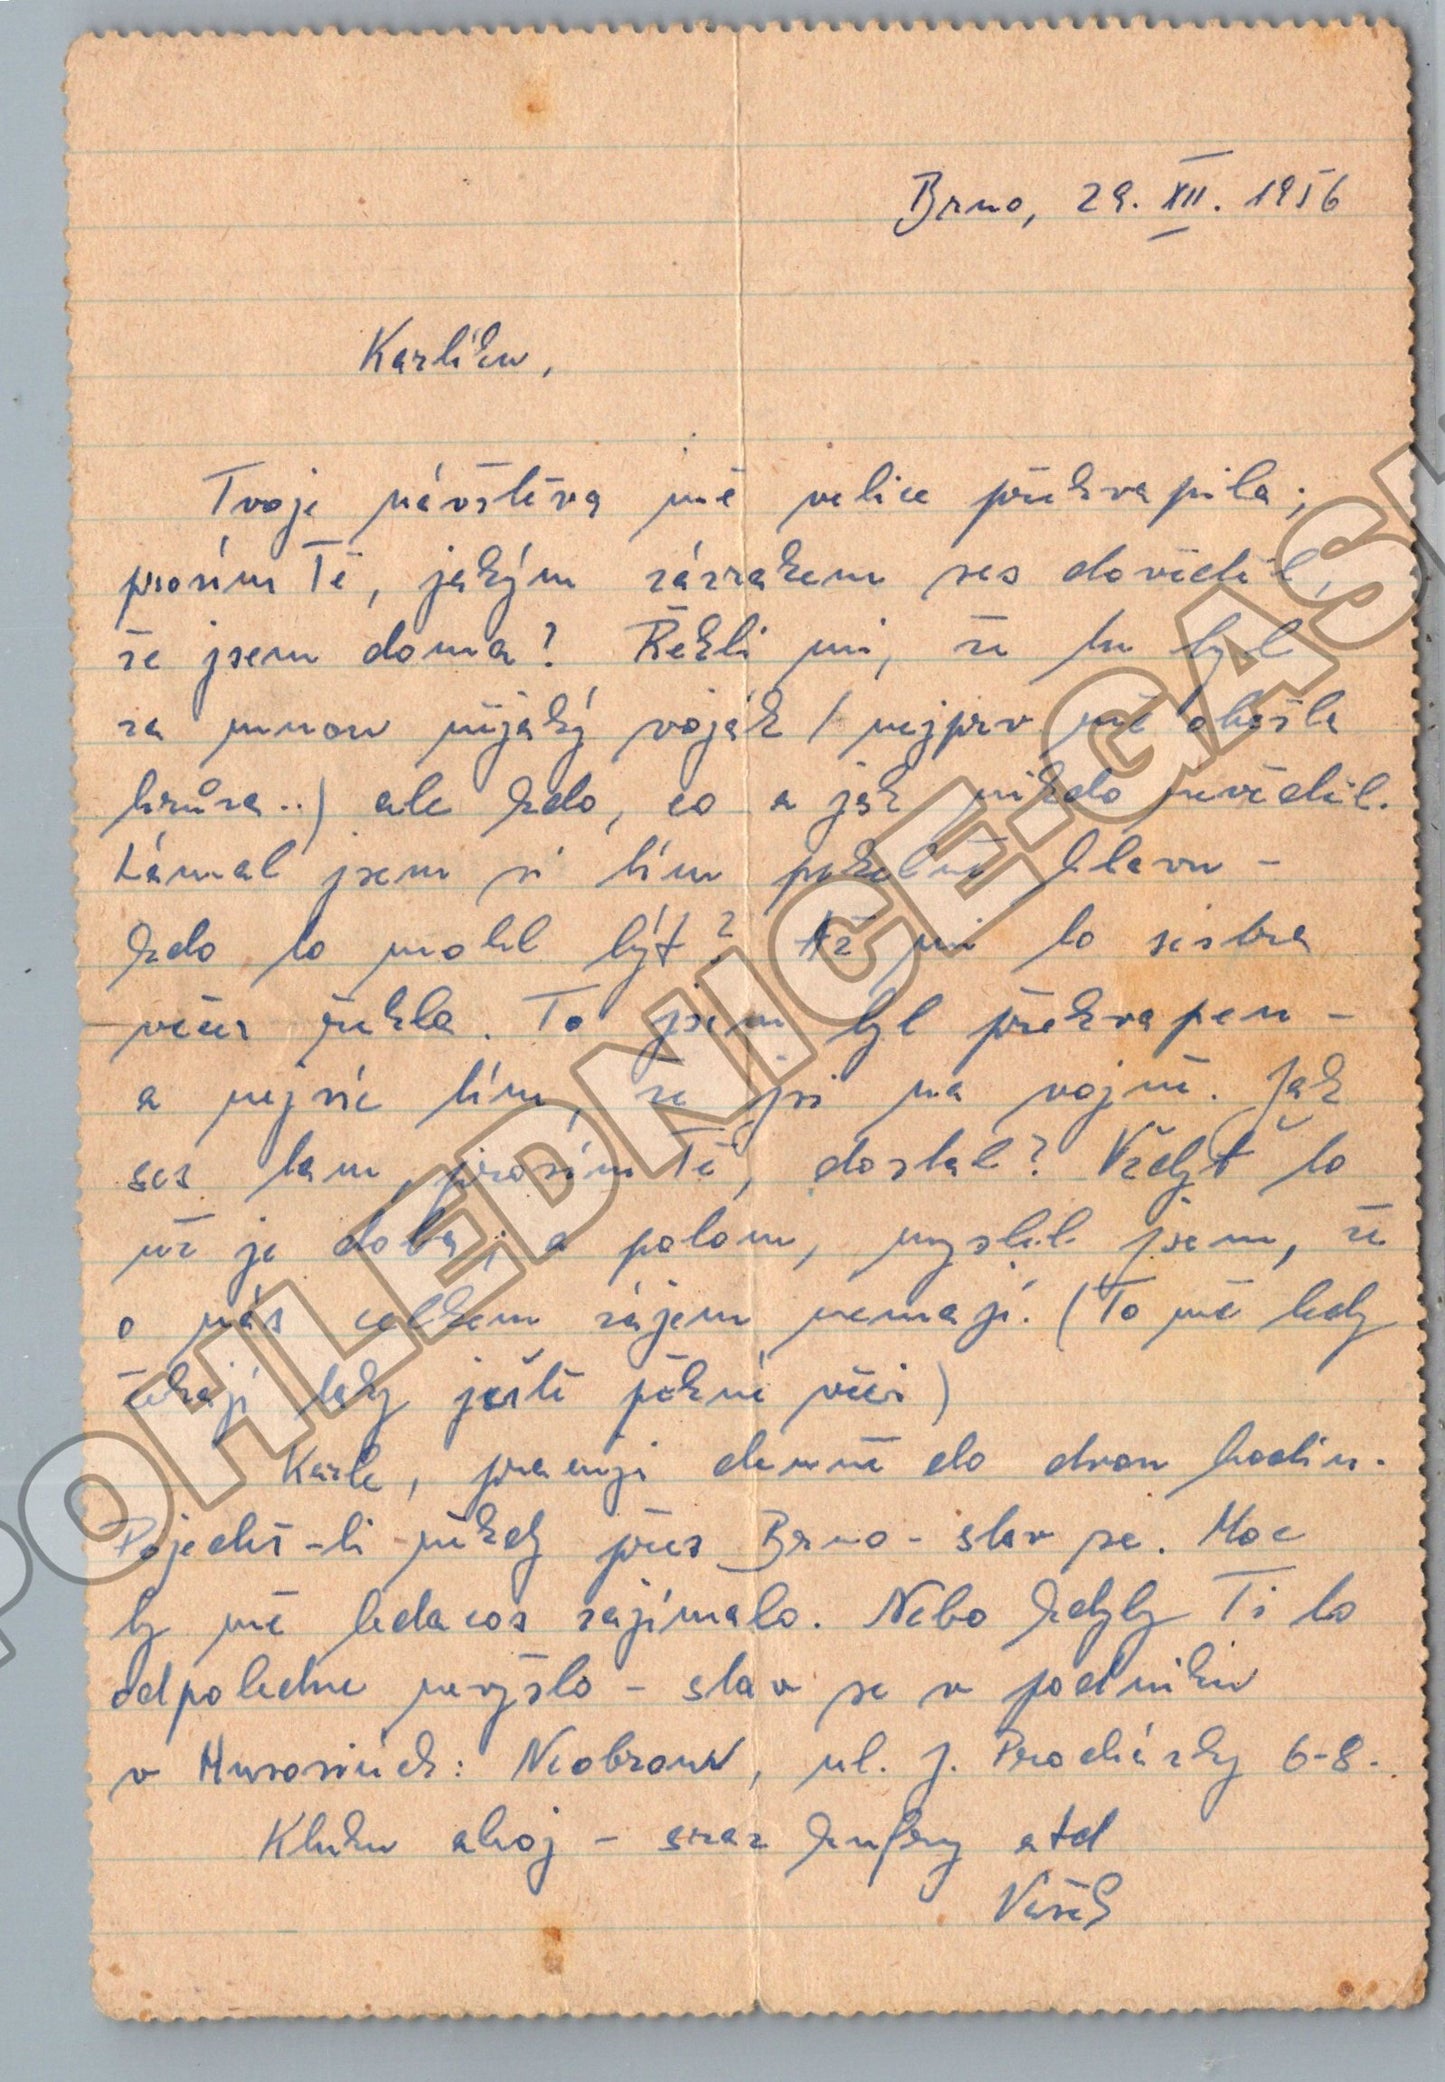 Brno, 29. XII. 1956
Karlíku,
Tvoje návštěva mě velice překvapila;
prosím Tě, jakým zázrakem ses dověděl,
že jsem doma? Řekli mi, že tu byl
za mnou nějaký voják / nejprv mě obešla
hrůza..) ale kdo, co a jak nikdo nevěděl.
Lámal jsem si tím pekelně hlavu -
kdo to mohl být? Až mi to sestra
večer řekla. To jsem byl překvapen -
a nejvíc tím, že jsi na vojně. Jak
ses tam, prosím Tě, dostal? Vždyť to
už je doba, a potom, myslel jsem, že
o nás celkem zájem nemají. (To mě tedy
čekají taky ještě pěkné věci)
Karle, pracuji denně do dvou hodin.
Pojedeš-li někdy přes Brno - stav se. Moc
by mě ledacos zajímalo. Nebo kdyby Ti to
odpoledne nevyšlo - stav se v podniku
v Husovicích: Neobrouv, ul. J. Procházky 6-8.
Kluku ahoj - sraz kufry atd
Vašek
POHLEDNICE.GASH